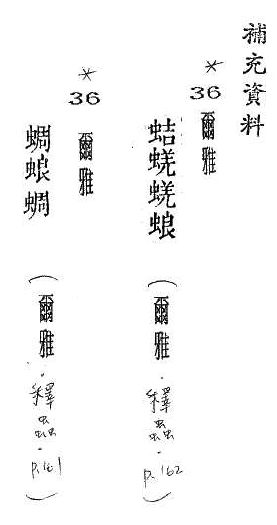 補充資料
*36爾雅
蛣蜣蜣蜋（爾雅·釋蟲·p.162）
*36爾雅
蜩蜋蜩（爾雅·釋蟲·p.161）